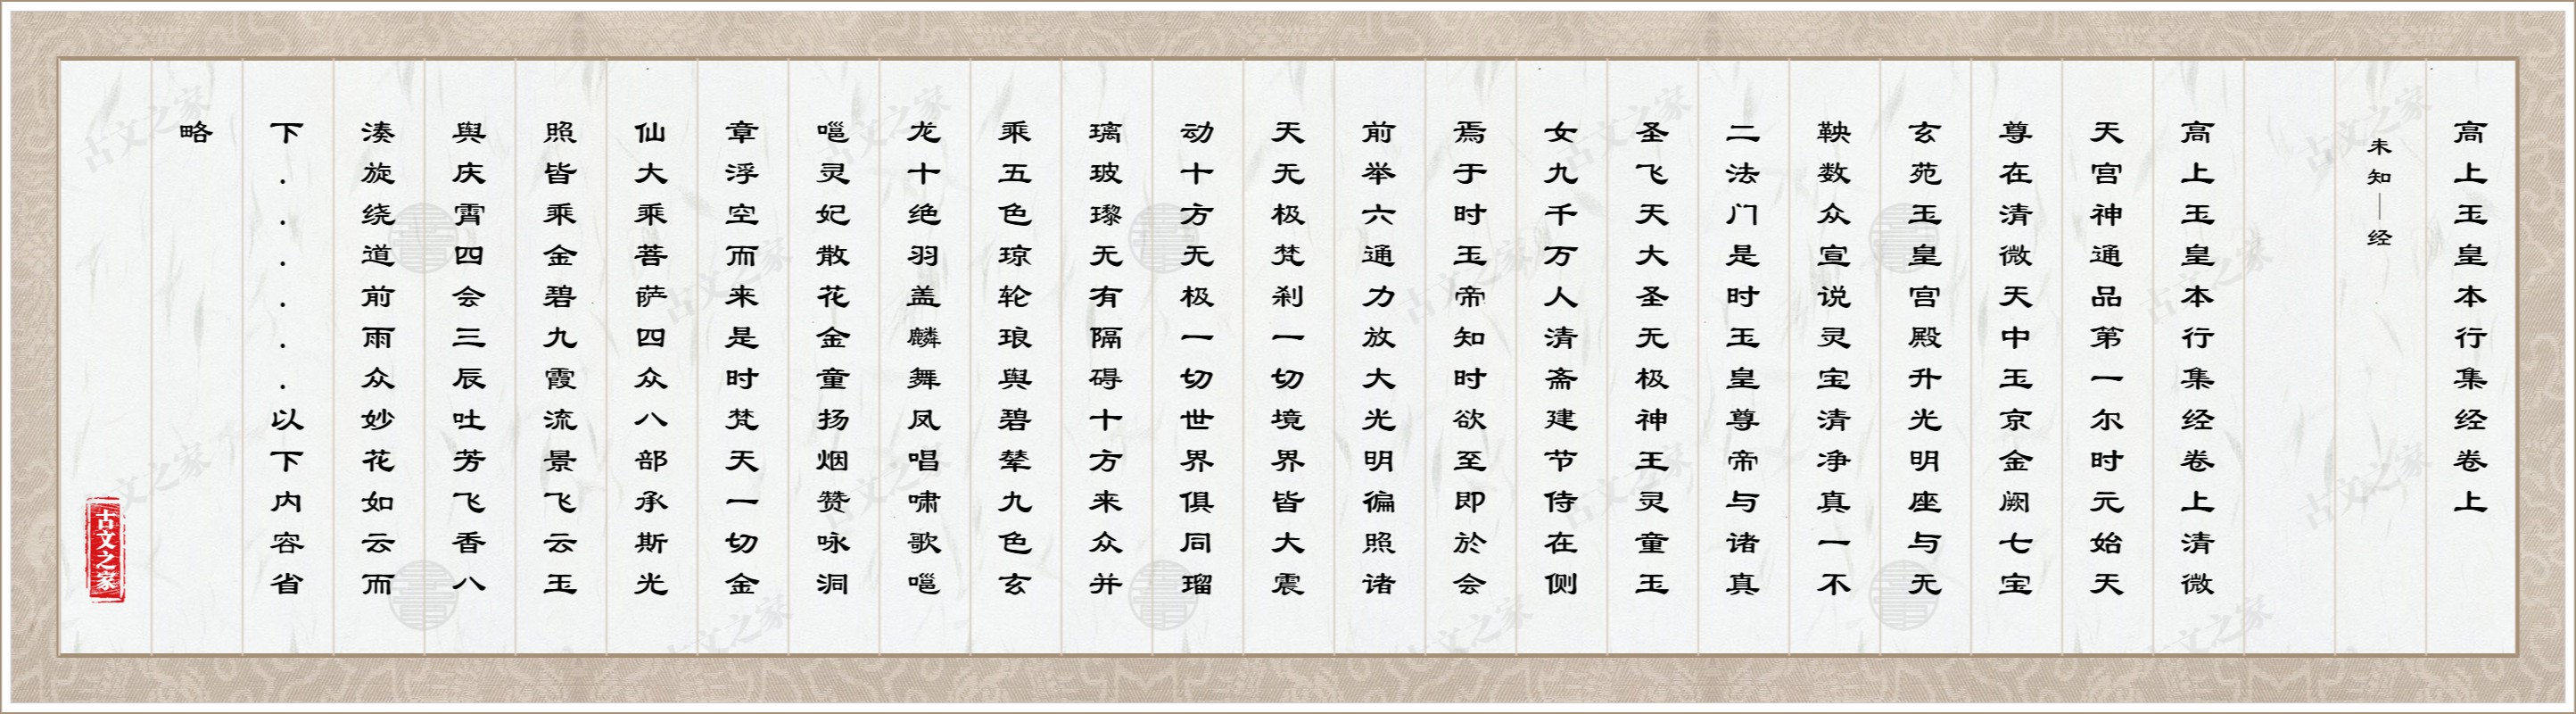 高上玉皇本行集经卷上
未知—经
高上玉皇本行集经卷上清微
天宫神通品第一尔时元始天
尊在清微天中玉京金阙七宝
玄苑玉皇宫殿升光明座与无
鞅数众宣说灵宝清净真一不
二法门是时玉皇尊帝与诸真
圣飞天大圣无极神王灵童玉
女九千万人清斋建节侍在侧
焉于时玉帝知时欲至即於会
前举六通力放大光明徧照诸
天无极梵刹一切境界皆大震
动十方无极一切世界俱同瑠
璃玻瓈无有隔碍十方来众并
乘五色琼轮琅舆碧辇九色玄
龙十绝羽盖麟舞凤唱啸歌嗈
嗈灵妃散花金童扬烟赞咏洞
章浮空而来是时梵天一切金
仙大乘菩萨四众八部承斯光
照皆乘金碧九霞流景飞云玉
舆庆霄四会三辰吐芳飞香八
凑旋绕道前雨众妙花如云而
下......以下内容省
略
古文之家